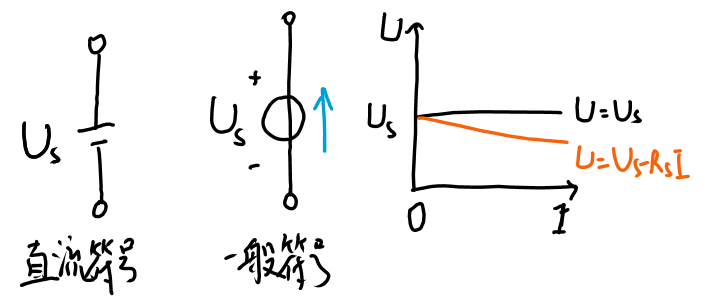 Us
直流符号
+
Us
-
一般符号
U
Us
U=Us
U=Us-RsI
0
I